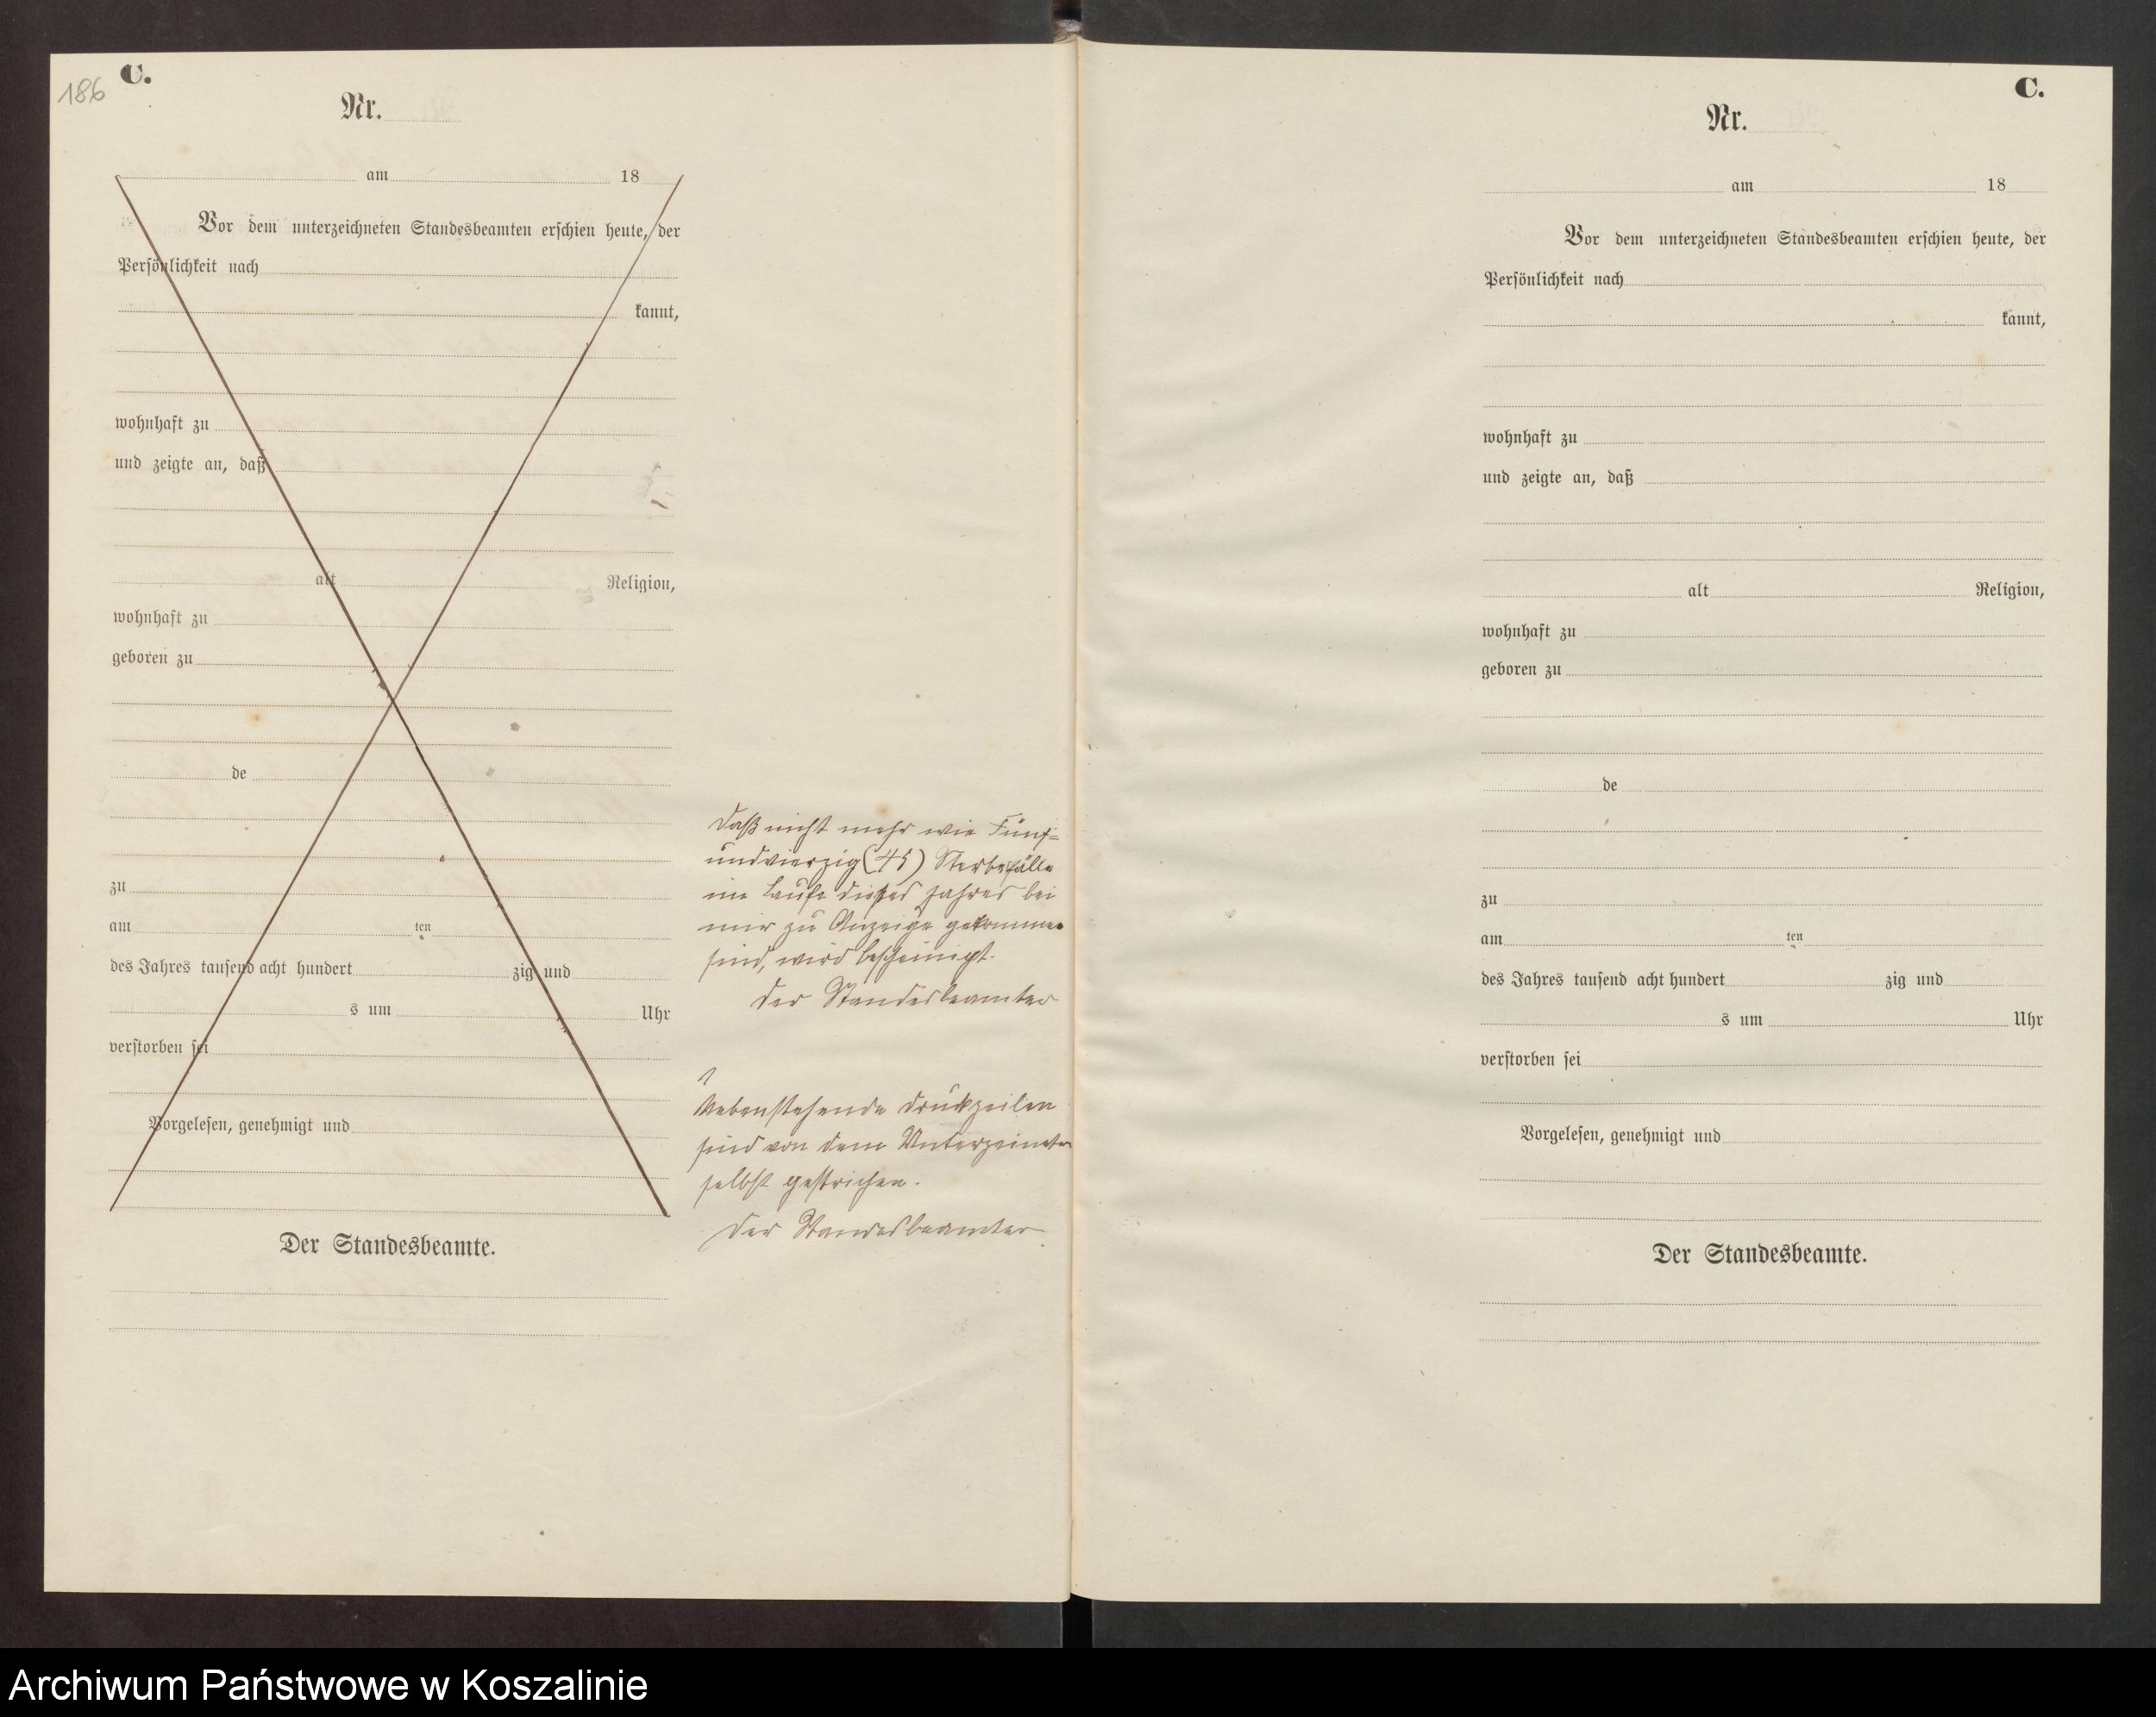 186
C.
Nr.
am 18
Vor dem unterzeichneten Standesbeamten erschien heute, der
Persönlichkeit nach
kannt,
wohnhaft zu
und zeigte an, daß
alt Religion,
wohnhaft zu
geboren zu
de
zu
am ten
des Jahres tausend acht hundert zig und
s um Uhr
verstorben sei
Vorgelesen, genehmigt und
Der Standesbeamte.
Daß nicht mehr wie Fünf=
undvierzig (45) Sterbefälle
im Laufe dieses Jahres bei
mir zu Anzeige gekommen
sind, wird bescheinigt.
Der Standesbeamter
Nebenstehende Druckzeilen
sind von dem Unterzeineten
selbst gestrichen.
Der Standesbeamter
C.
Nr.
am 18
Vor dem unterzeichneten Standesbeamten erschien heute, der
Persönlichkeit nach
kannt,
wohnhaft zu
und zeigte an, daß
alt Religion,
wohnhaft zu
geboren zu
de
zu
am ten
des Jahres tausend acht hundert zig und
s um Uhr
verstorben sei
Vorgelesen, genehmigt und
Der Standesbeamte.
Archiwum Państwowe w Koszalinie